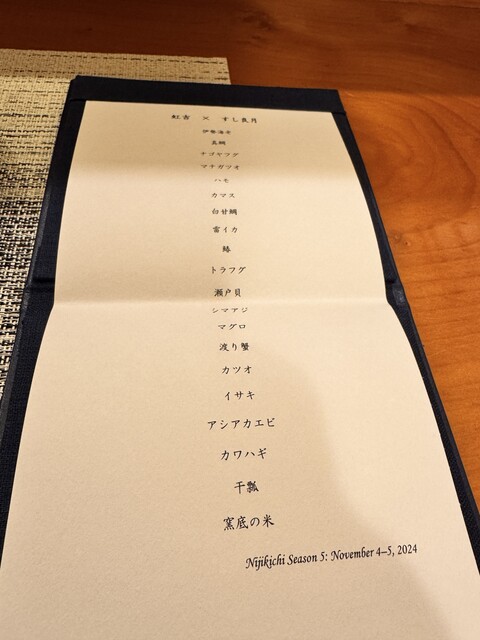 虹吉 × すし良月
伊勢海老
真鯛
ナゴヤフグ
マナガツオ
ハモ
カマス
白甘鯛
雷イカ
鰆
トラフグ
瀬戸貝
シマアジ
マグロ
渡り蟹
カツオ
イサキ
アシアカエビ
カワハギ
干瓢
窯底の米
Nijikichi Season 5: November 4–5, 2024